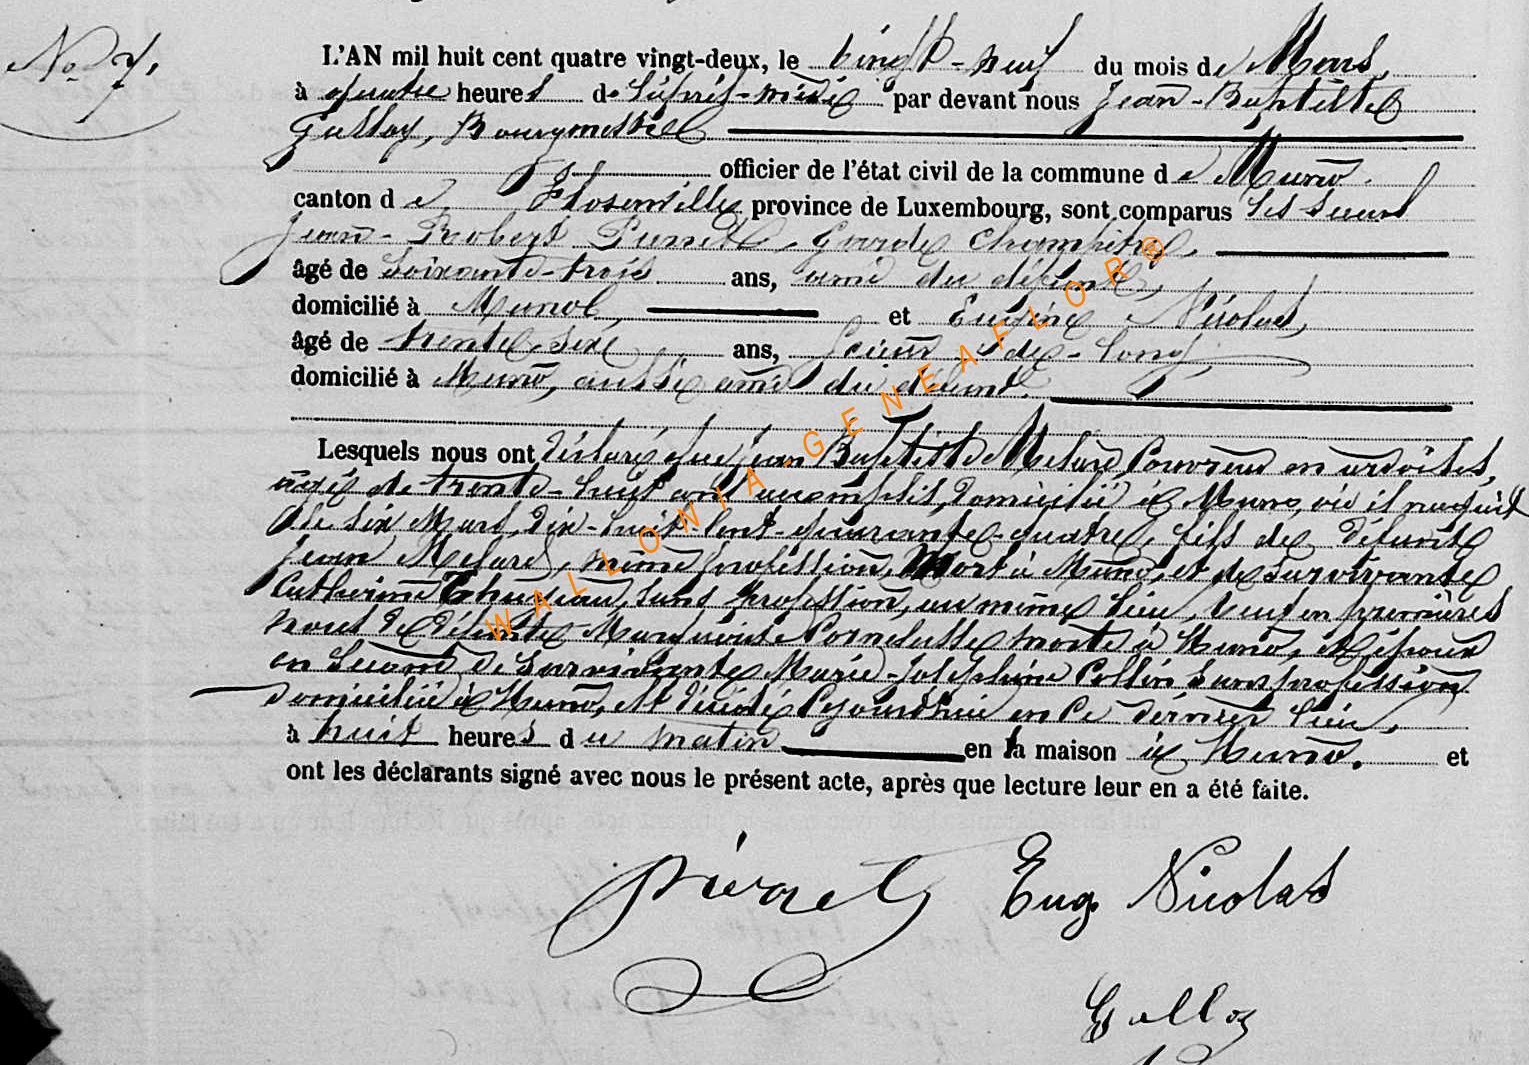 No 7.
L'AN mil huit cent quatre vingt-deux, le vingt-neuf du mois de Mars,
à quatre heures de l'après-midi par devant nous Jean-Baptiste
Golloy, Bourgmestre
officier de l'état civil de la commune de Muno.
canton de Florenville province de Luxembourg, sont comparus les sieurs
Jean-Robert Pierret, Garde champêtre,
âgé de soixante-trois ans, ami du défunt,
domicilié à Muno, et Eugène Nicolas,
âgé de trente six ans, scieur de-long,
domicilié à Muno, aussi ami du défunt.
Lesquels nous ont déclaré que Jean Baptiste Melard Couvreur en ardoises,
âgé de trente-huit ans accomplis, domicilié à Muno, où il naquit
le six Mars, dix-huit-cent-quarante-quatre, fils de défunt
Jean Melard, même profession, mort à Muno, et de survivante
Catherine sans profession, au même lieu, veuf en premières
noces de défunte Marguerite morte à Muno, époux
en second de survivante Marie-Joséphine Collin sans profession
domiciliée à Muno, est décédé cejourd'hui en ce dernier lieu,
à huit heures du matin en la maison à Muno. et
ont les déclarants signé avec nous le présent acte, après que lecture leur en a été faite.
Pierret Eug. Nicolas
Golloy
WALLONIA-GENEAFLOR®